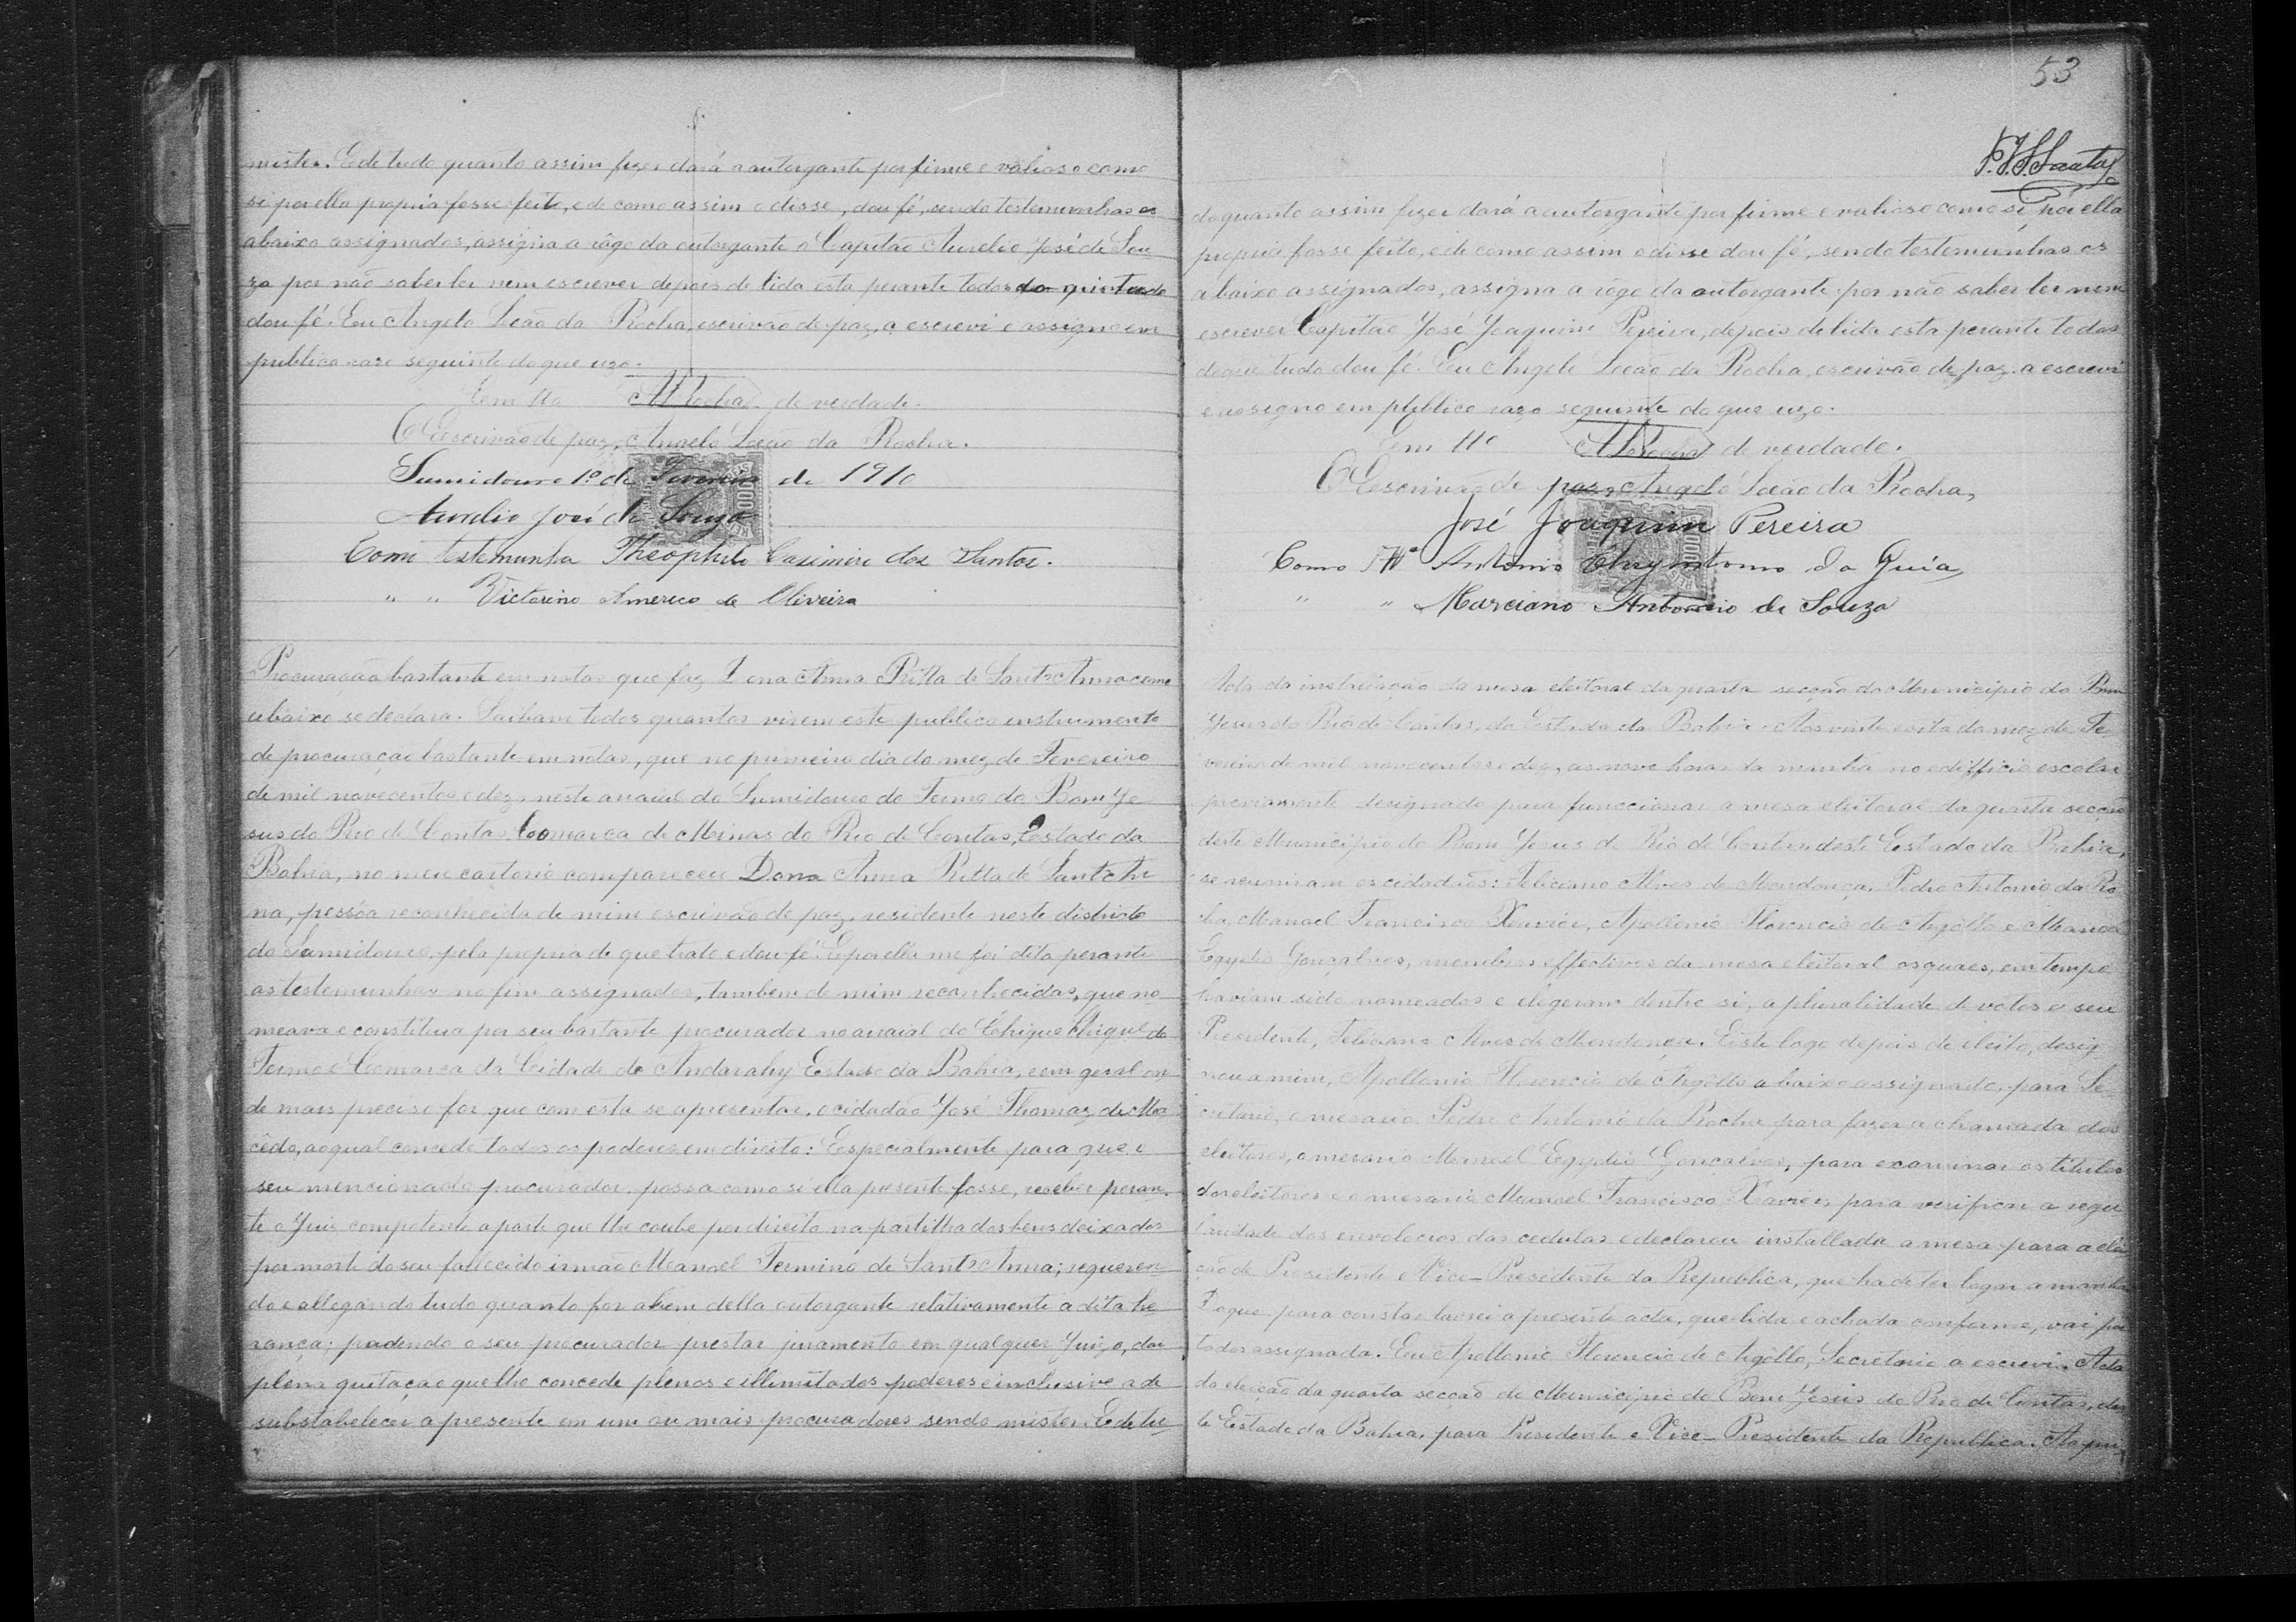 mister. E de tudo quanto assim fizer dará a outorgante por firme e valioso como
si por ella propria fosse feito, e de como assim o disse, dou fé, sendo testemunhas os
abaixo assignados, assigna a rôgo da outorgante o Capitão Aurelio José de Sou
za por não saber ler nem escrever depois de lida esta perante todos do que tudo
dou fé. Eu Angelo Leão da Rocha, escrivão de paz, a escrevi e assigno em
publico raso seguinte do que uzo.
Em tto ARocha de verdade.
O Escrivão de paz, Angelo Leão da Rocha.
Sumidouro 1º de Fevereiro de 1910
Aurelio José de Souza
Como testemunha Theophilo Casimiro dos Santos.
" " Victorino Americo de Oliveira
Procuração bastante em notas que faz Dona Anna Ritta de Sant'Anna como
abaixo se declara. Saibam todos quantos virem este publico instrumento
de procuração bastante em notas, que no primeiro dia do mez de Fevereiro
de mil novecentos e dez, neste arraial do Sumidouro do Termo do Bom Je
sus do Rio de Contas Comarca de Minas do Rio de Contas, Estado da
Bahia, no meu cartorio compareceu Dona Anna Ritta de Sant'An
na, pessôa reconhecida de mim escrivão de paz, residente neste districto
do Sumidouro, pela propria de que trato e dou fé. E por ella me foi dito perante
as testemunhas no fim assignados, tambem de mim reconhecidas, que no
meava e constituia por seu bastante procurador no arraial do Chique Chique do
Termo e Comarca da Cidade de Andarahy Estado da Bahia, e em geral on
de mais preciso for que com esta se apresentar, o cidadão José Thomaz de Ma
cêdo, ao qual concede todos os poderes em direito: Especialmente para que o
seu mencionado procurador possa como si ella presente fosse, receber peran-
te o Juiz competente a parte que lhe coube por direito na partilha dos bens deixados
por morte do seu fallecido irmão Manoel Firmino de Sant'Anna; requeren-
do e allegando tudo quanto for a bem della outorgante relativamente a dita he-
rança; podendo o seu procurador prestar juramento em qualquer Juizo, dar
plena quitação que lhe concede plenos e illimitados poderes e inclusive a de
substabelecer a presente em um ou mais procuradores sendo mister. E de tu-
53
do quanto assim fizer dará a outorgante por firme e valioso como si por ella
propria fosse feito, e de como assim o disse dou fé, sendo testemunhas os
abaixo assignados, assigna a rôgo da outorgante por não saber ler nem
escrever Capitão José Joaquim Pereira, depois de lida esta perante todos
do que tudo dou fé. Eu Angelo Leão da Rocha, escrivão de paz, a escrevi
e assigno em publico raso seguinte do que uzo.
Em tto ARocha de verdade.
O Escrivão de paz, Angelo Leão da Rocha,
José Joaquim Pereira
Como Tª Antonio Chrysostomo da Guia
" " Marciano Antonio de Souza
Acta da installação da mesa eleitoral da quarta secção do Municipio do Bom
Jesus do Rio de Contas, do Estado da Bahia. Aos vinte e oito do mez de Fe-
vereiro de mil novecentos e dez, as nove horas da manhã no edifficio escolar
previamente designado para funccionar a mesa eleitoral da quarta secção
deste Municipio do Bom Jesus do Rio de Contas deste Estado da Bahia,
se reuniram os cidadãos: Feliciano Alves de Mendonça, Pedro Antonio da Ro
cha, Manoel Francisco Xavier, Apollonio Florencio de Argôllo e Manoel
Egydio Gonçalves, membros effectivos da mesa eleitoral os quaes, em tempo
haviam sido nomeados e elegeram dentre si, a pluralidade de votos o seu
Presidente, Feliciano Alves de Mendonça. Este logo depois de eleito, desig
nou a mim, Apollonio Florencio de Argôllo abaixo assignado, para Se-
cretario, o mesario Pedro Antonio da Rocha para fazer a chamada dos
eleitores, o mesario Manoel Egydio Gonçalves, para examinar os titulos
dos eleitores e o mesario Manoel Francisco Xavier, para verificar a regu
laridade dos envolocros das cedulas e declarou installada a mesa para a elei
ção de Presidente e Vice-Presidente da Republica, que ha de ter logar amanhã.
Do que para constar lavrei a presente acta, que lida e achada conforme, vai por
todos assignada. Eu Apollonio Florencio de Argôllo, Secretario a escrevi. Acta
da eleição da quarta secção do Municipio do Bom Jesus do Rio de Contas, des
te Estado da Bahia, para Presidente e Vice-Presidente da Republica. Ao pri